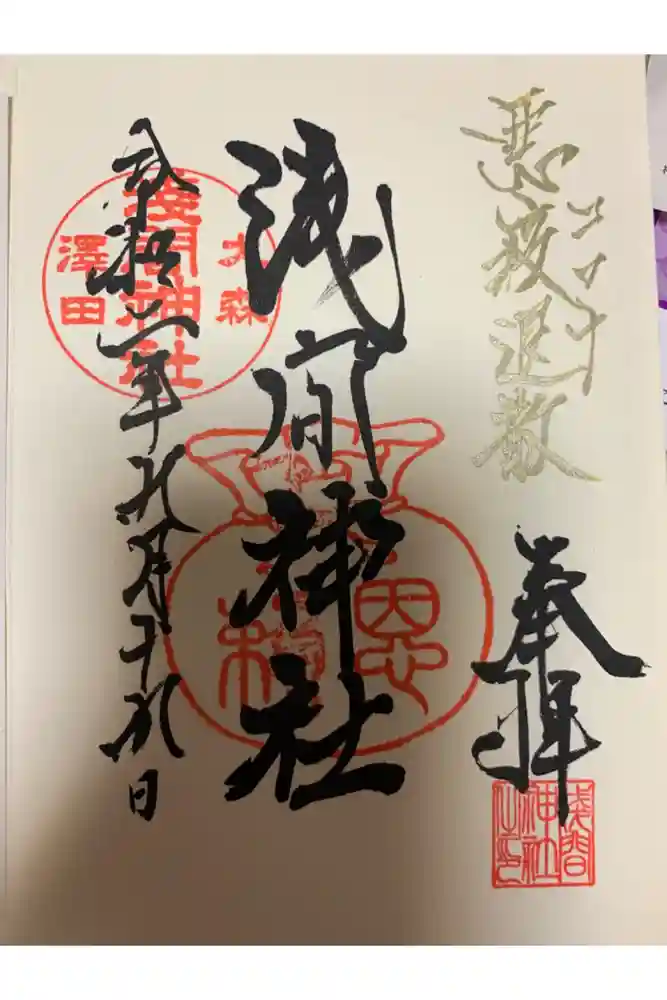 コロナ
悪疫退散
奉拝
淺間神社之印
浅間神社
大森
淺間神社
澤田
令和二年九月十九日